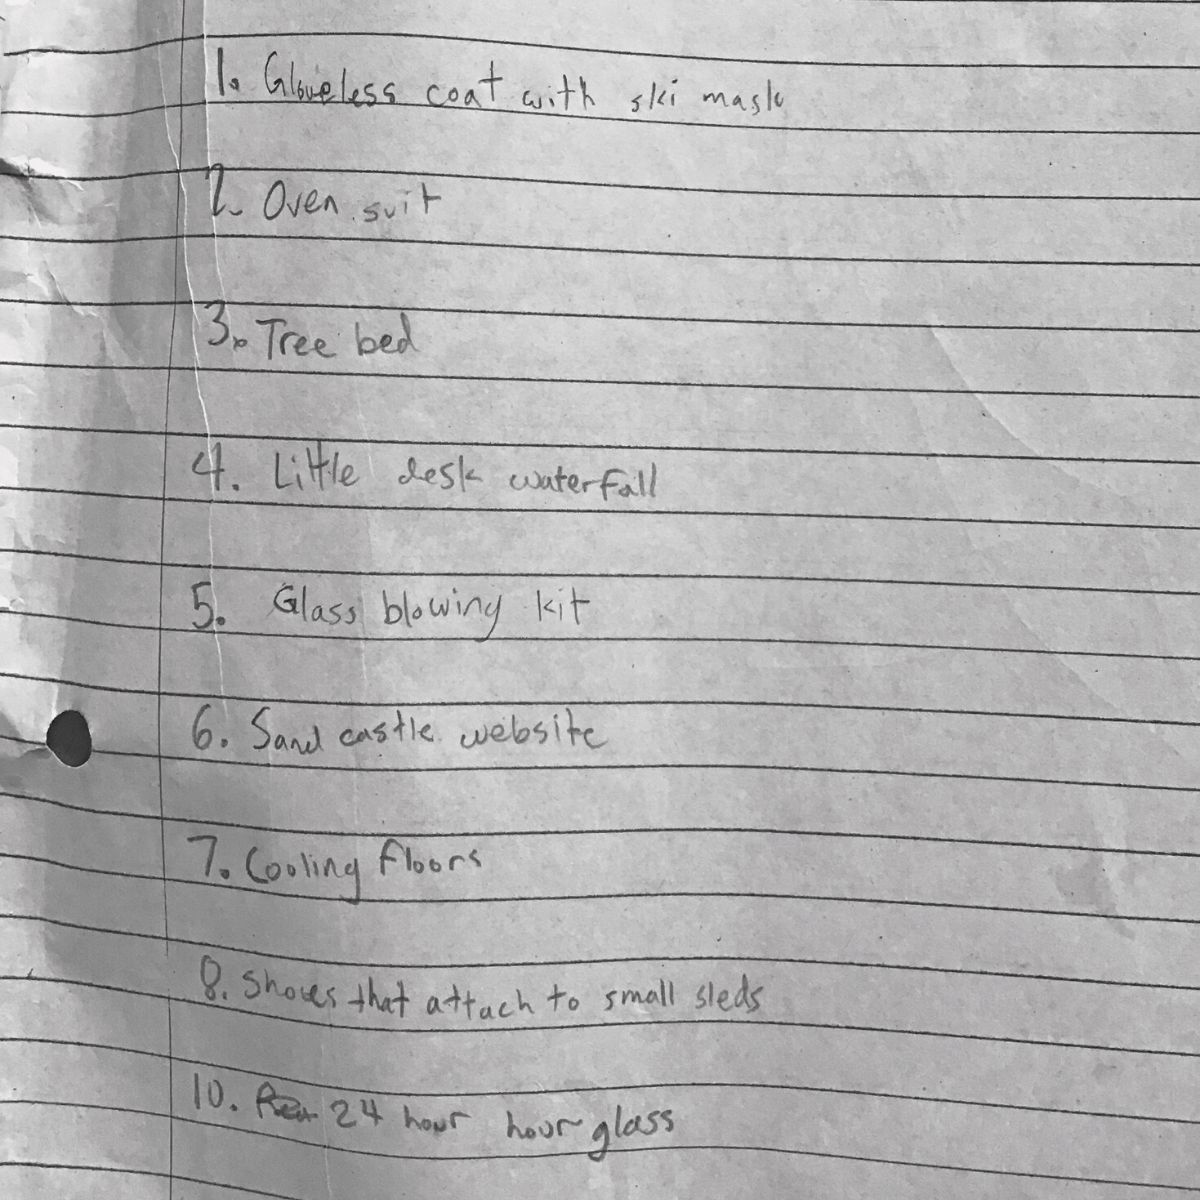 1. Gloveless coat with ski mask
2. Oven suit
3. Tree bed
4. Little desk waterfall
5. Glass blowing kit
6. Sand castle website
7. Cooling floors
8. Shoes that attach to small sleds
10. 24 hour hour glass